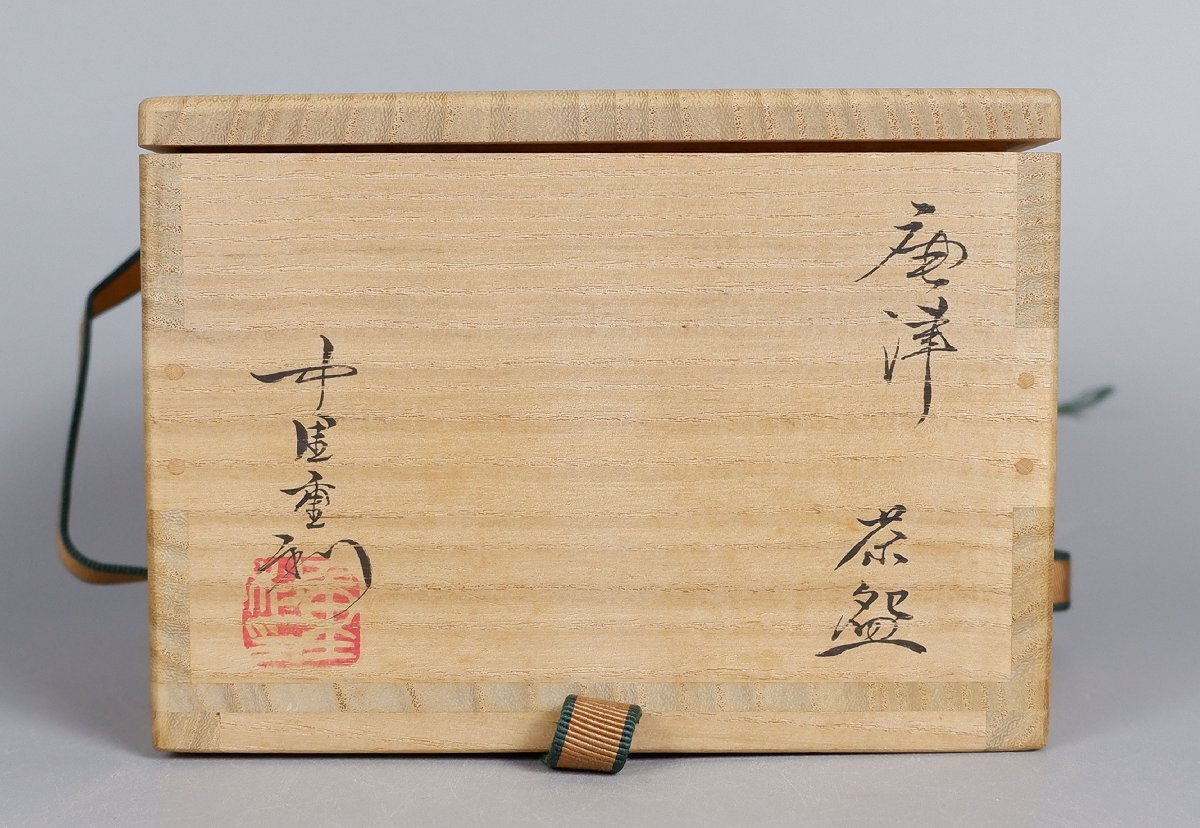 唐津
茶盌
中里重利